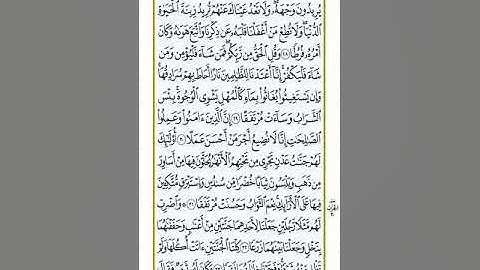 يُرِيدُونَ وَجْهَهُۥ وَلَا تَعْدُ عَيْنَاكَ عَنْهُمْ تُرِيدُ زِينَةَ ٱلْحَيَوٰةِ
ٱلدُّنْيَا وَلَا تُطِعْ مَنْ أَغْفَلْنَا قَلْبَهُۥ عَن ذِكْرِنَا وَٱتَّبَعَ هَوَىٰهُ وَكَانَ
أَمْرُهُۥ فُرُطًا ٢٨ وَقُلِ ٱلْحَقُّ مِن رَّبِّكُمْ فَمَن شَآءَ فَلْيُؤْمِن وَمَن
شَآءَ فَلْيَكْفُرْ إِنَّآ أَعْتَدْنَا لِلظَّٰلِمِينَ نَارًا أَحَاطَ بِهِمْ سُرَادِقُهَا
وَإِن يَسْتَغِيثُوا۟ يُغَاثُوا۟ بِمَآءٍ كَٱلْمُهْلِ يَشْوِى ٱلْوُجُوهَ بِئْسَ
ٱلشَّرَابُ وَسَآءَتْ مُرْتَفَقًا ٢٩ إِنَّ ٱلَّذِينَ ءَامَنُوا۟ وَعَمِلُوا۟
ٱلصَّٰلِحَٰتِ إِنَّا لَا نُضِيعُ أَجْرَ مَنْ أَحْسَنَ عَمَلًا ٣٠ أُو۟لَٰٓئِكَ
لَهُمْ جَنَّٰتُ عَدْنٍ تَجْرِى مِن تَحْتِهِمُ ٱلْأَنْهَٰرُ يُحَلَّوْنَ فِيهَا مِنْ أَسَاوِرَ
مِن ذَهَبٍ وَيَلْبَسُونَ ثِيَابًا خُضْرًا مِّن سُندُسٍ وَإِسْتَبْرَقٍ مُّتَّكِـِٔينَ
فِيهَا عَلَى ٱلْأَرَآئِكِ نِعْمَ ٱلثَّوَابُ وَحَسُنَتْ مُرْتَفَقًا ٣١ ۞ وَٱضْرِبْ
لَهُم مَّثَلًا رَّجُلَيْنِ جَعَلْنَا لِأَحَدِهِمَا جَنَّتَيْنِ مِنْ أَعْنَٰبٍ وَحَفَفْنَٰهُمَا
بِنَخْلٍ وَجَعَلْنَا بَيْنَهُمَا زَرْعًا ٣٢ كِلْتَا ٱلْجَنَّتَيْنِ ءَاتَتْ أُكُلَهَا وَلَمْ